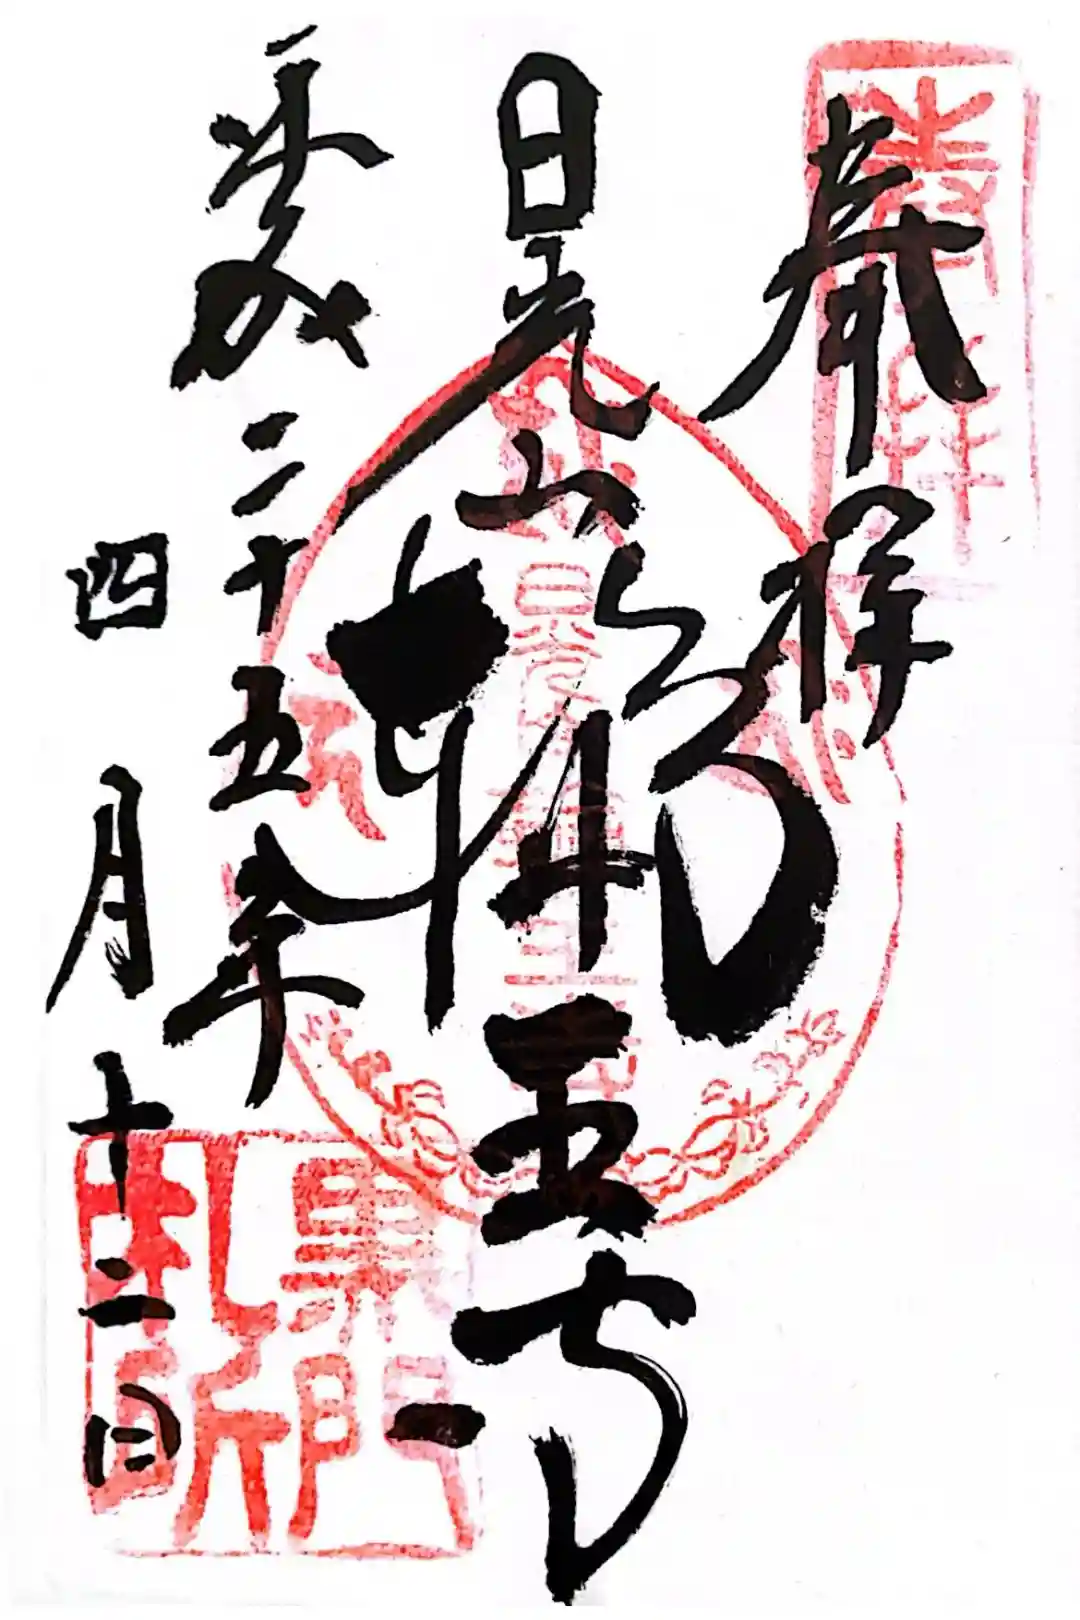 奉拝
奉拝
日光山
輪王寺
平成二十五年
四月十二日
黒門
札所